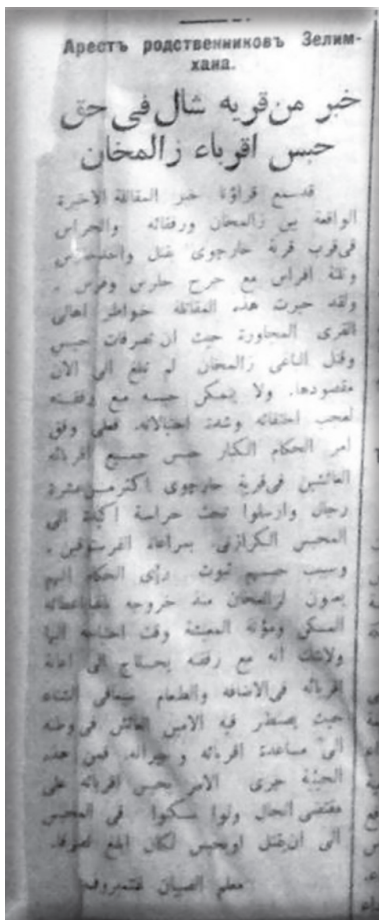 Арестъ родственниковъ Зелим-
хана.
خبر من قريه شال فى حق
حبس اقرباء زالمخان
قد سمع قراؤنا خبر المقاتلة الاخيرة
الواقعة بين زالمخان ورفقائه والحراس
فى قرب قرية خارچوى بقتل واحد
وثلثة افراس مع جرح حارس وفرس
ولقد حيرت هذه المقاتلة خواطر اهالى
القرى المجاورة حيث ان تصرفات حبس
وقتل الباغى زالمخان لم تبلغ الى الان
مقصودها. ولا يمكن حبسه مع رفقته
لعجب اختفائه وشدة احتيالاته. فعلى وفق
امر الحكام الكبار حبس جميع اقربائه
العائشين فى قرية خارچوى اكثر من عشرة
رجال وارسلوا تحت حراسة اكيدة الى
المحبس الكرازنى.
وسبب حبسهم ثبوت رأى الحكام انهم
يعينون لزالمخان منذ خروجه
المسكن ومؤنة المعيشة وقت احتياجه اليها
ولاشك انه مع رفقته يحتاج الى اعانة
اقربائه فى الاضافه والطعام الشتاء
حيث يضطر فيه الامين العائش فى وطنه
الى مساعدة اقربائه وجيرانه. فمن هذه
الحيثية جرى الامر بحبس اقربائه على
مقتضى الحال ولو سكنوا فى المحبس
الى ان يقتل او يحبس لكان ابلغ تصرفا.
معلم الصبيان